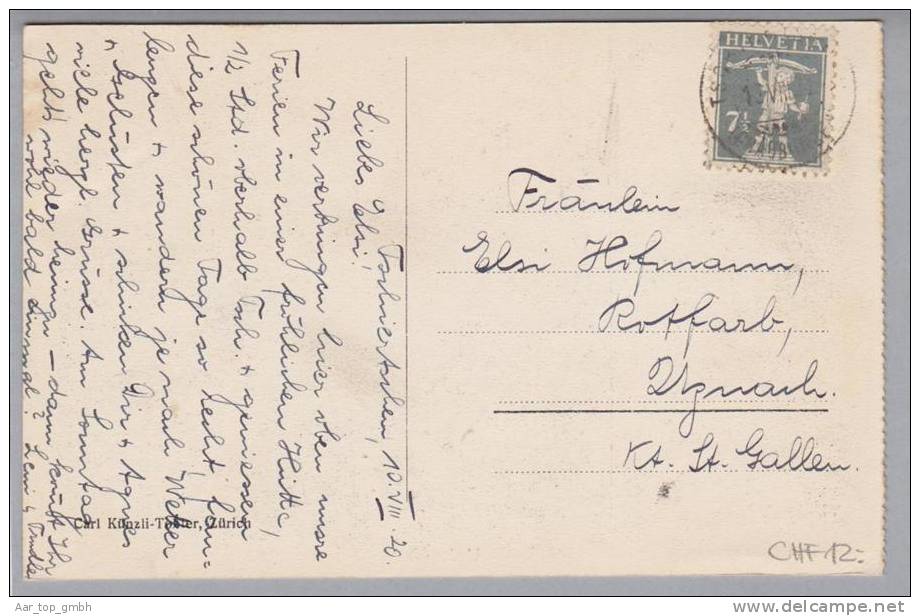 Tschiertschen, 10. VIII. 20.
Liebes Elsi!
Wir verbringen hier oben unsre
Ferien in einer fröhlichen Hütte,
1/2 Std. oberhalb Tsch. + geniessen
diese schönen Tage so recht. Fau-
lenzen + wandern je nach Wetter
+ Gelüsten + schicken Dir + Agnes
viele herzl. Grüsse. Am Sonntag
geht's wieder heimzu – dann kommt Ihr
wohl bald einmal? Leni &
Carl Künzli-Tobler, Zürich
HELVETIA
7½
Fräulein
Elsi Hofmann,
Rotfarb,
Uznach.
Kt. St. Gallen.
CHF 12.-
Aar_top_gmbh
www.delcampe.net